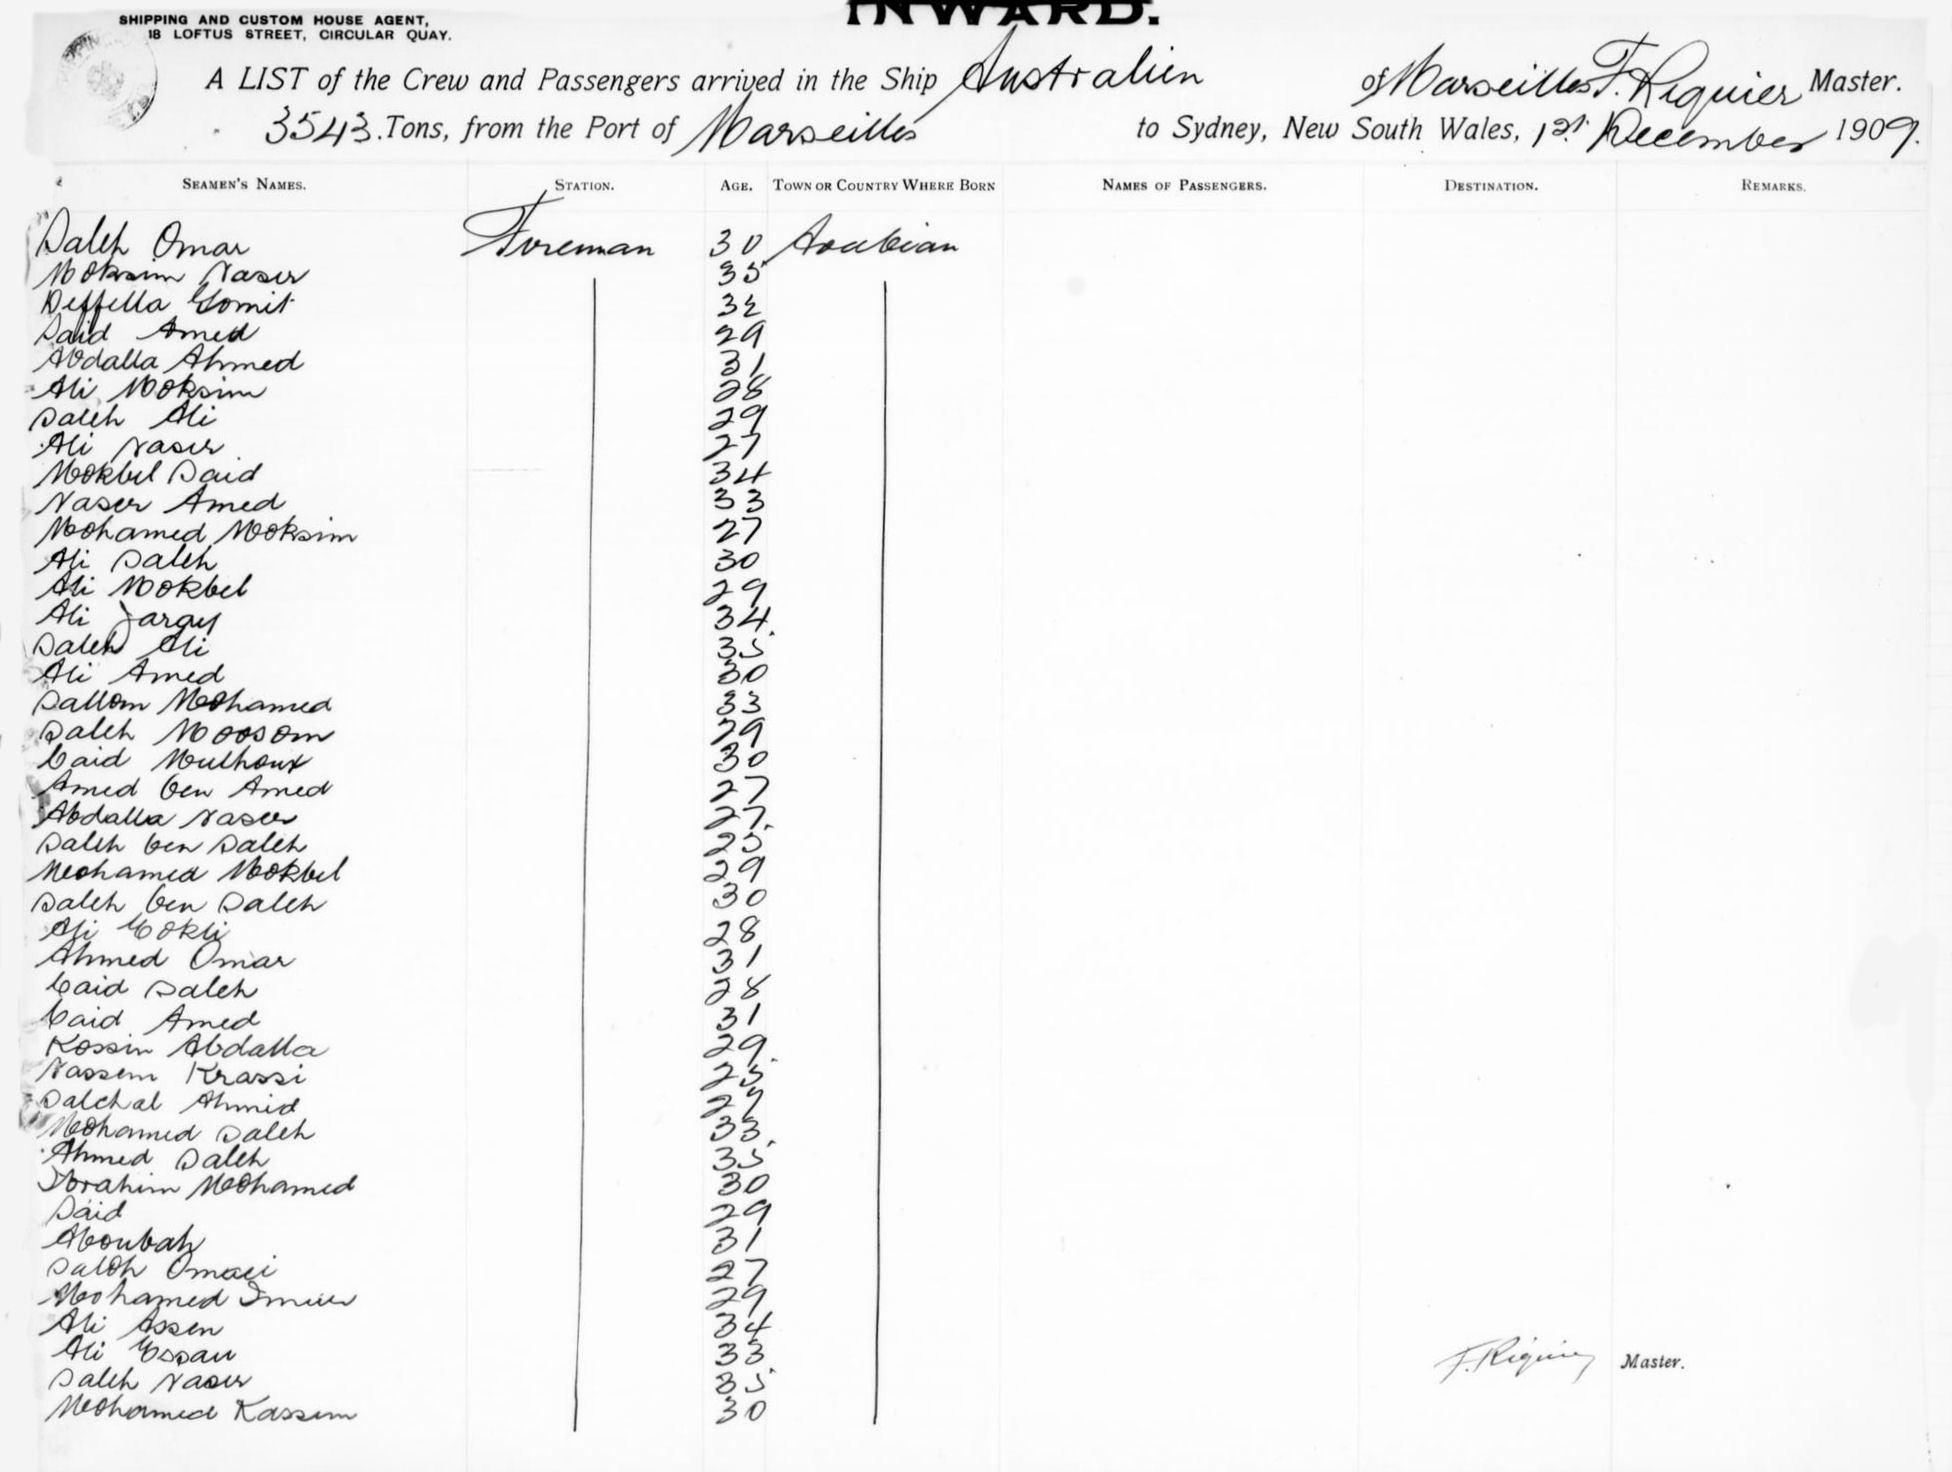 INWARD.
SHIPPING AND CUSTOM HOUSE AGENT,
18 LOFTUS STREET, CIRCULAR QUAY.
A LIST of the Crew and Passengers arrived in the Ship Australien of Marseilles F. Riquier Master.
3543 Tons, from the Port of Marseilles to Sydney, New South Wales, 1st December 1909.
SEAMEN'S NAMES. STATION. AGE. TOWN OR COUNTRY WHERE BORN NAMES OF PASSENGERS. DESTINATION. REMARKS.
Saleh Omar Foreman 30 Arabian
Moksim Naser 35
Deffella Gomit 32
Said Amed 29
Abdalla Ahmed 31
Ali Moksim 28
Saleh Ali 29
Ali Naser 27
Mokbel Said 34
Naser Amed 33
Mohamed Moksim 27
Ali Saleh 30
Ali Mokbel 29
Ali Jaray 34
Saleh Ali 35
Ali Amed 30
Sallom Mohamed 33
Saleh Moosom 29
Caid Mulhoux 30
Amed ben Amed 27
Abdalla Naser 27
Saleh ben Saleh 25
Mohamed Mokbel 29
Saleh ben Saleh 30
Ali 28
Ahmed Omar 31
Caid Saleh 28
Caid Amed 31
Kossin Abdalla 29
Nassem Krassi 25
Salehal Ahmid 27
Mohamed Saleh 33
Ahmed Saleh 35
Ibrahim Mohamed 30
Said 29
Aboubah 31
Saleh 27
Mohamed 29
Ali Assen 34
Ali Essau 33
F. Riquier Master.
Saleh Naser 35
Mohamed Kassem 30